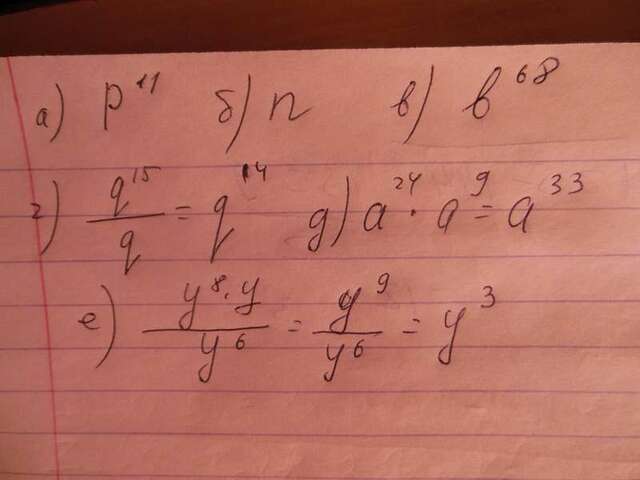 а) p¹¹ б) n в) b⁶⁸
г) q¹⁵/q = q¹⁴ д) a²⁴ · a⁹ = a³³
е) y⁸·y/y⁶ = y⁹/y⁶ = y³